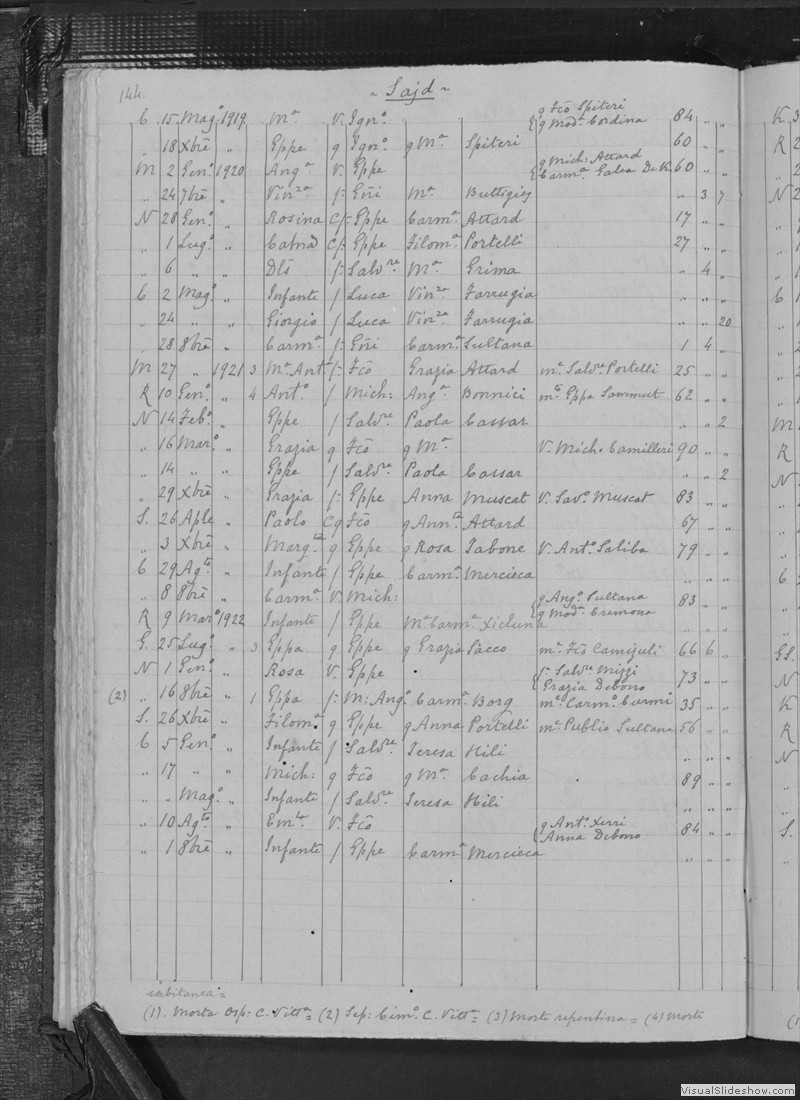 144.
~ Sajd ~
C 15 Magº 1919 Mª V. Ignº { g Fcõ Spiteri 84 " "
g Madª Cordina
" 18 Xbrẽ " Eppe g Ignº g Mª Spiteri 60 " "
M 2 Genº 1920 Angª V. Eppe { g Mich: Attard 60 " "
Carmª Galea DeK
" 24 7brẽ " Vinza f: Gñi Mª Buttigieg " 3 7
N 28 Genº " Rosina C f: Eppe Carmª Attard 17 " "
" 1 Lugº " C f: Eppe Filomª Portelli 27 " "
" 6 " " Salvre Mª Grima " 4 "
C 2 Magº " Infante f Luca Vinza Farrugia " " "
" 24 " " Giorgio f Luca Vinza Farrugia " " 20
" 28 8brẽ " Carmª f: Gñi Carmª Sultana 1 4 "
M 27 " 1921 3 Mª Antª f: Fcõ Grazia Attard mª Salvre Portelli 25 " "
R 10 Genº " 4 Antº f Mich: Angª Bonnici Eppa Sammut 62 " "
N 14 Febº " Eppe f Salvre Paola Cassar " " 2
" 16 Marº " Grazia g Fcõ g Mª V. Mich: Camilleri 90 " "
" 14 " " Eppe f Salvre Paola Cassar " " 2
" 29 Xbrẽ " Grazia f: Eppe Anna Muscat V. Savº Muscat 83 " "
S. 26 Aple " Paolo C g Fcõ g Annta Attard 67 " "
" 3 Xbrẽ " Margta g Eppe g Rosa Tabone V. Antº Saliba 79 " "
C 29 Agto " Infante f Eppe Carmª Mercieca " " "
" 8 8brẽ " Carmª V. Mich: { g Angº Sultana 83 " "
g Madª Cremona
R 9 Marº 1922 Infante f Eppe Mª Carmª Xicluna " " "
G. 25 Lugº " 3 Eppa g Eppe g Grazia Sacco mª Fcõ Camejuli 66 6 "
N 1 Genº " Rosa V. Eppe { f: Salvre Mizzi 73 " "
Grazia Debono
(2) " 16 8brẽ " 1 Eppa f: M: Angº Carmª Borg mª Carmº Curmi 35 " "
S. 26 Xbrẽ " Filomª g Eppe g Anna Portelli mª Publio Sultana 56 " "
C 5 Genº " Infante f Salvre Teresa Hili " " "
" 17 " " Mich: g Fcõ g Mª Cachia 89 " "
" " Magº " Infante f Salvre Teresa Hili " " "
" 10 Agto " V. Fcõ { g Antº Xerri 84 " "
Anna Debono
" 1 8brẽ " Infante f Eppe Carmª Mercieca " " "
subitanea =
(1). Morta Osp: C. Vittª = (2) Sep: Cimº C. Vittª = (3) Morte repentina = (4) Morte
K 3
R 2
"
N 2
C 1
M
R
N
C
GS.
N
K
R
N
S.
VisualSlideshow.com